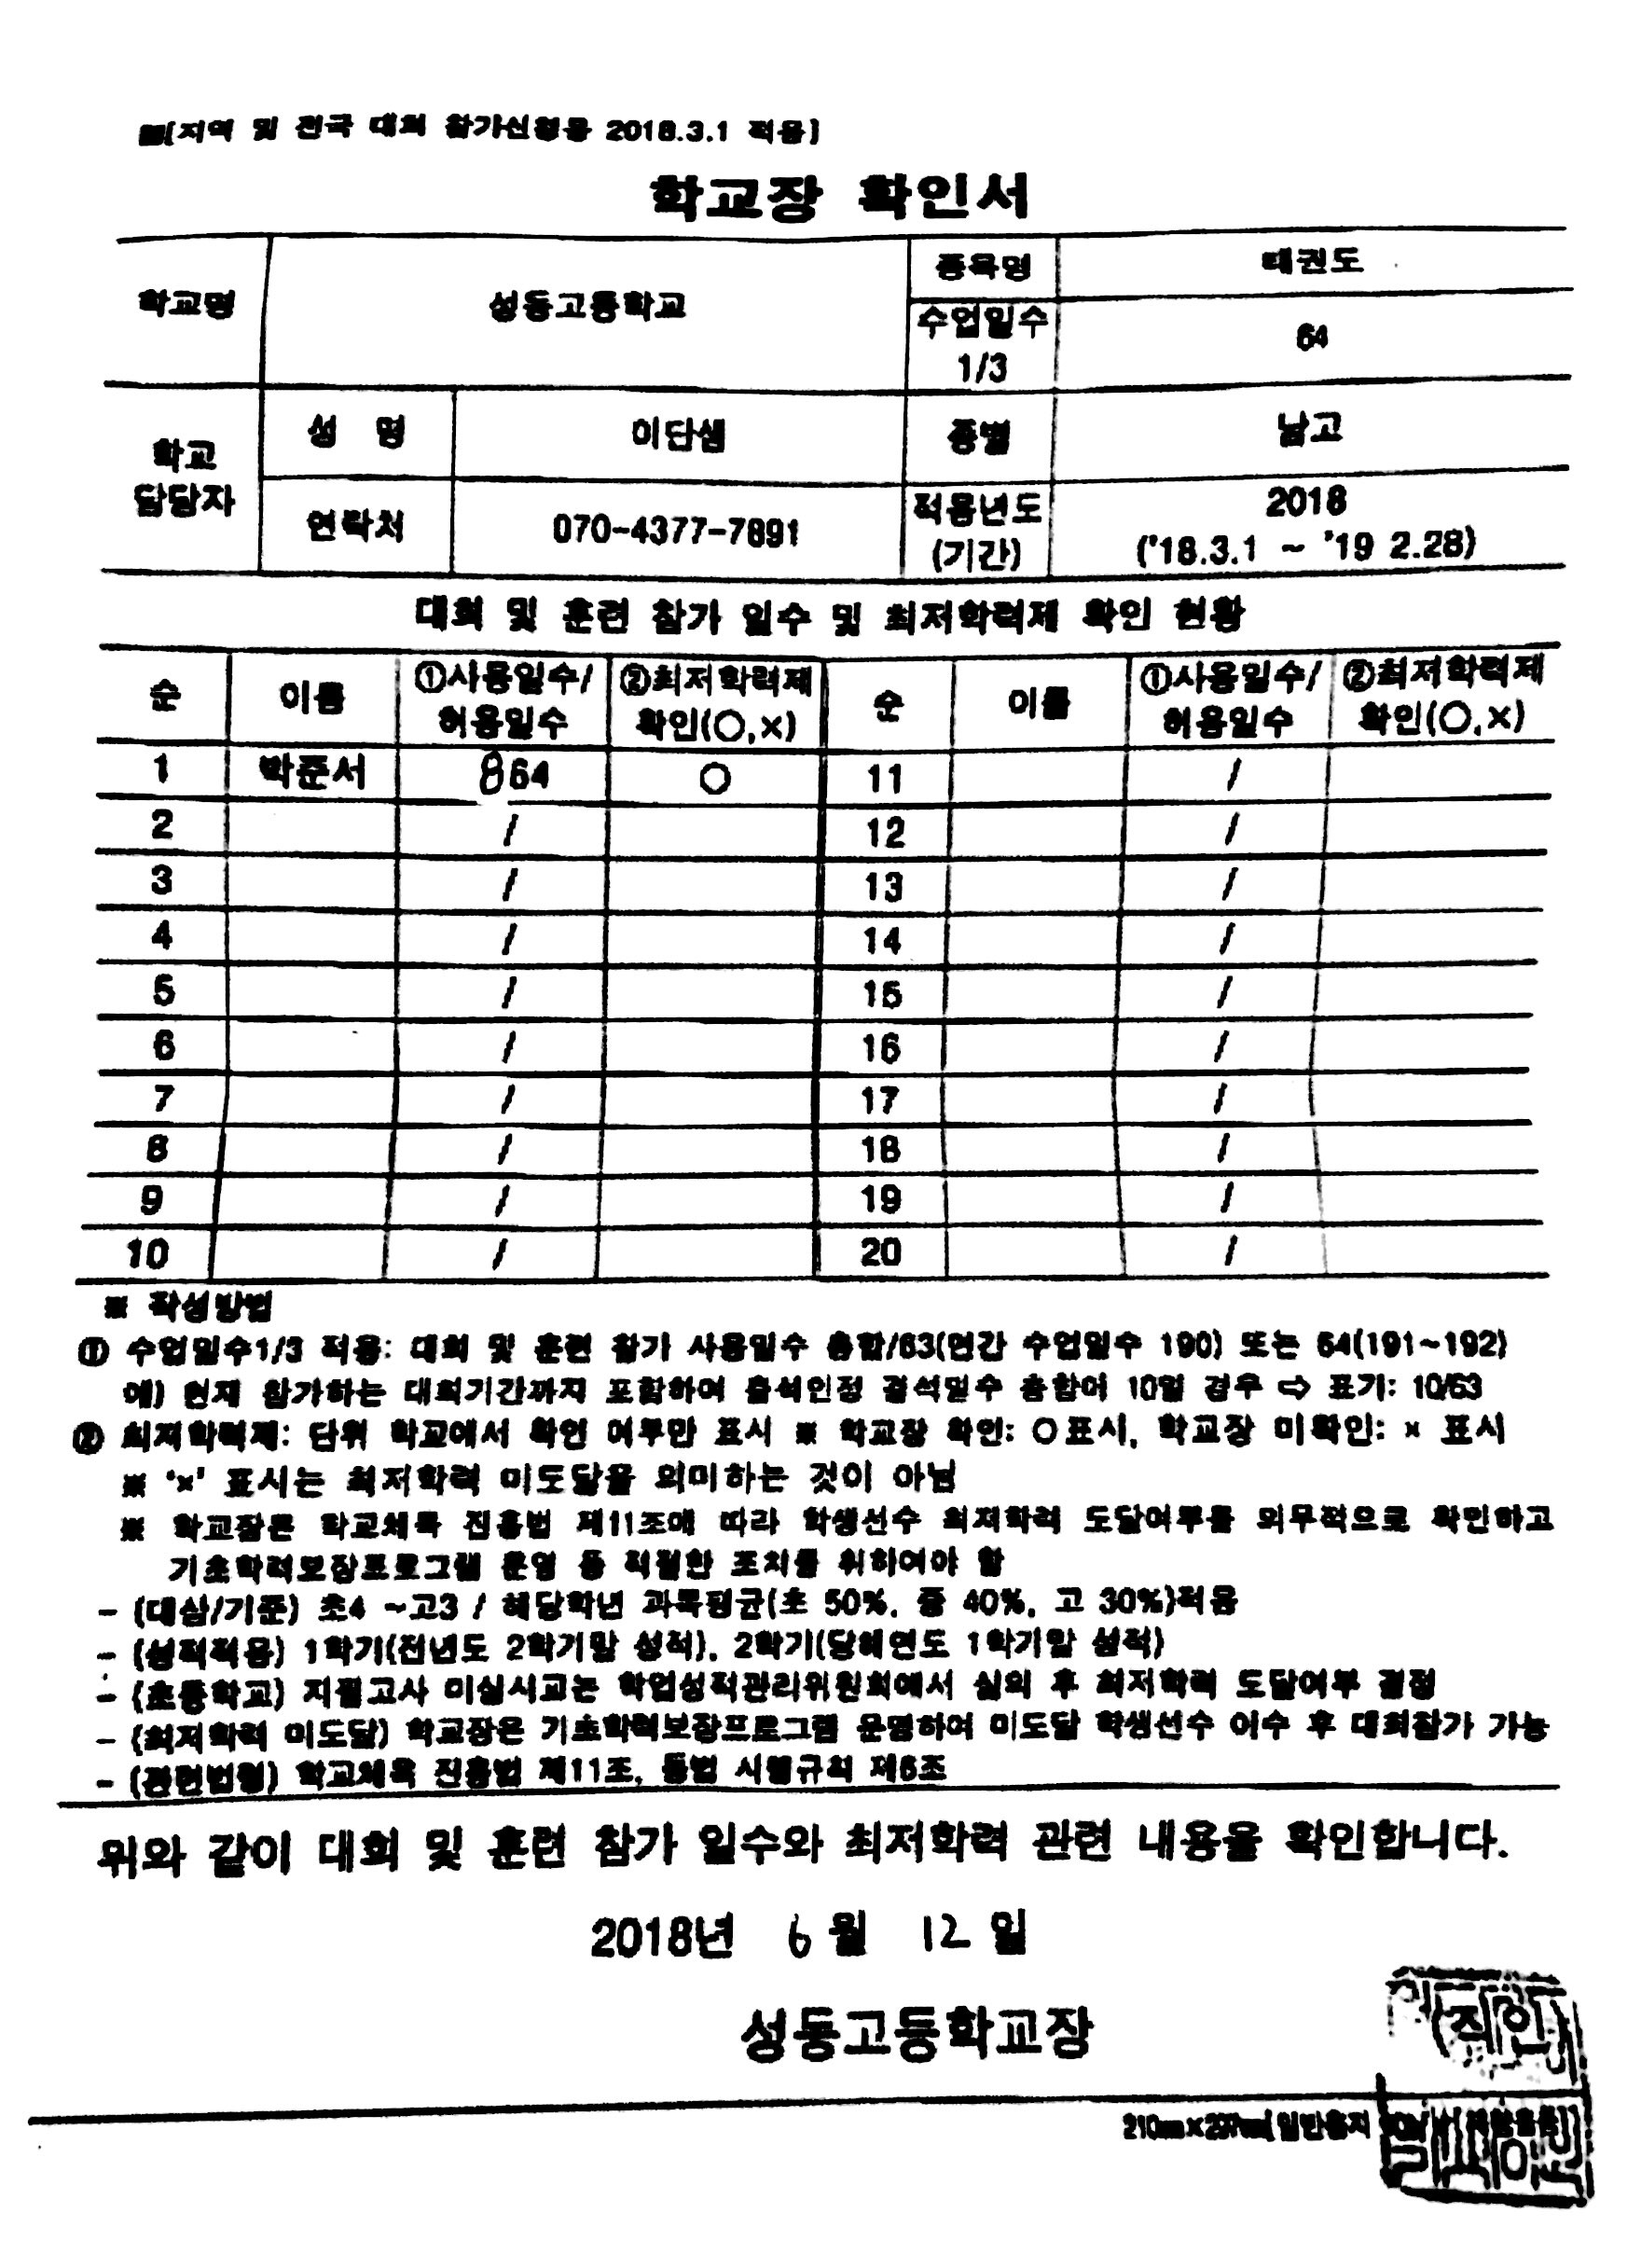 [지역 및 전국 대회 참가신청용 2018.3.1 적용]
학교장 확인서
학교명 성동고등학교 종목명 태권도
수업일수 1/3 64
학교 담당자 성 명 이단샘 종별 남고
연락처 070-4377-7891 적용년도 (기간) 2018 ('18.3.1 ~ '19 2.28)
대회 및 훈련 참가 일수 및 최저학력제 확인 현황
순 이름 ①사용일수/허용일수 ②최저학력제 확인(○,×) 순 이름 ①사용일수/허용일수 ②최저학력제 확인(○,×)
1 박준서 864 ○ 11 /
2 / 12 /
3 / 13 /
4 / 14 /
5 / 15 /
6 / 16 /
7 / 17 /
8 / 18 /
9 / 19 /
10 / 20 /
※ 작성방법
① 수업일수1/3 적용: 대회 및 훈련 참가 사용일수 총합/63(연간 수업일수 190) 또는 64(191~192)
예) 현재 참가하는 대회기간까지 포함하여 출석인정 결석일수 총합이 10일 경우 ⇨ 표기: 10/63
② 최저학력제: 단위 학교에서 확인 여부만 표시 ※ 학교장 확인: ○표시, 학교장 미확인: × 표시
※ '×' 표시는 최저학력 미도달을 의미하는 것이 아님
※ 학교장은 학교체육 진흥법 제11조에 따라 학생선수 최저학력 도달여부를 의무적으로 확인하고
기초학력보장프로그램 운영 등 적절한 조치를 취하여야 함
- (대상/기준) 초4 ~고3 / 해당학년 과목평균(초 50%, 중 40%, 고 30%)적용
- (성적적용) 1학기(전년도 2학기말 성적), 2학기(당해연도 1학기말 성적)
- (초등학교) 지필고사 미실시교는 학업성적관리위원회에서 심의 후 최저학력 도달여부 결정
- (최저학력 미도달) 학교장은 기초학력보장프로그램 운영하여 미도달 학생선수 이수 후 대회참가 가능
- (관련법령) 학교체육 진흥법 제11조, 동법 시행규칙 제6조
위와 같이 대회 및 훈련 참가 일수와 최저학력 관련 내용을 확인합니다.
2018년 6월 12일
성동고등학교장
(직인)
210㎜×297㎜[일반용지